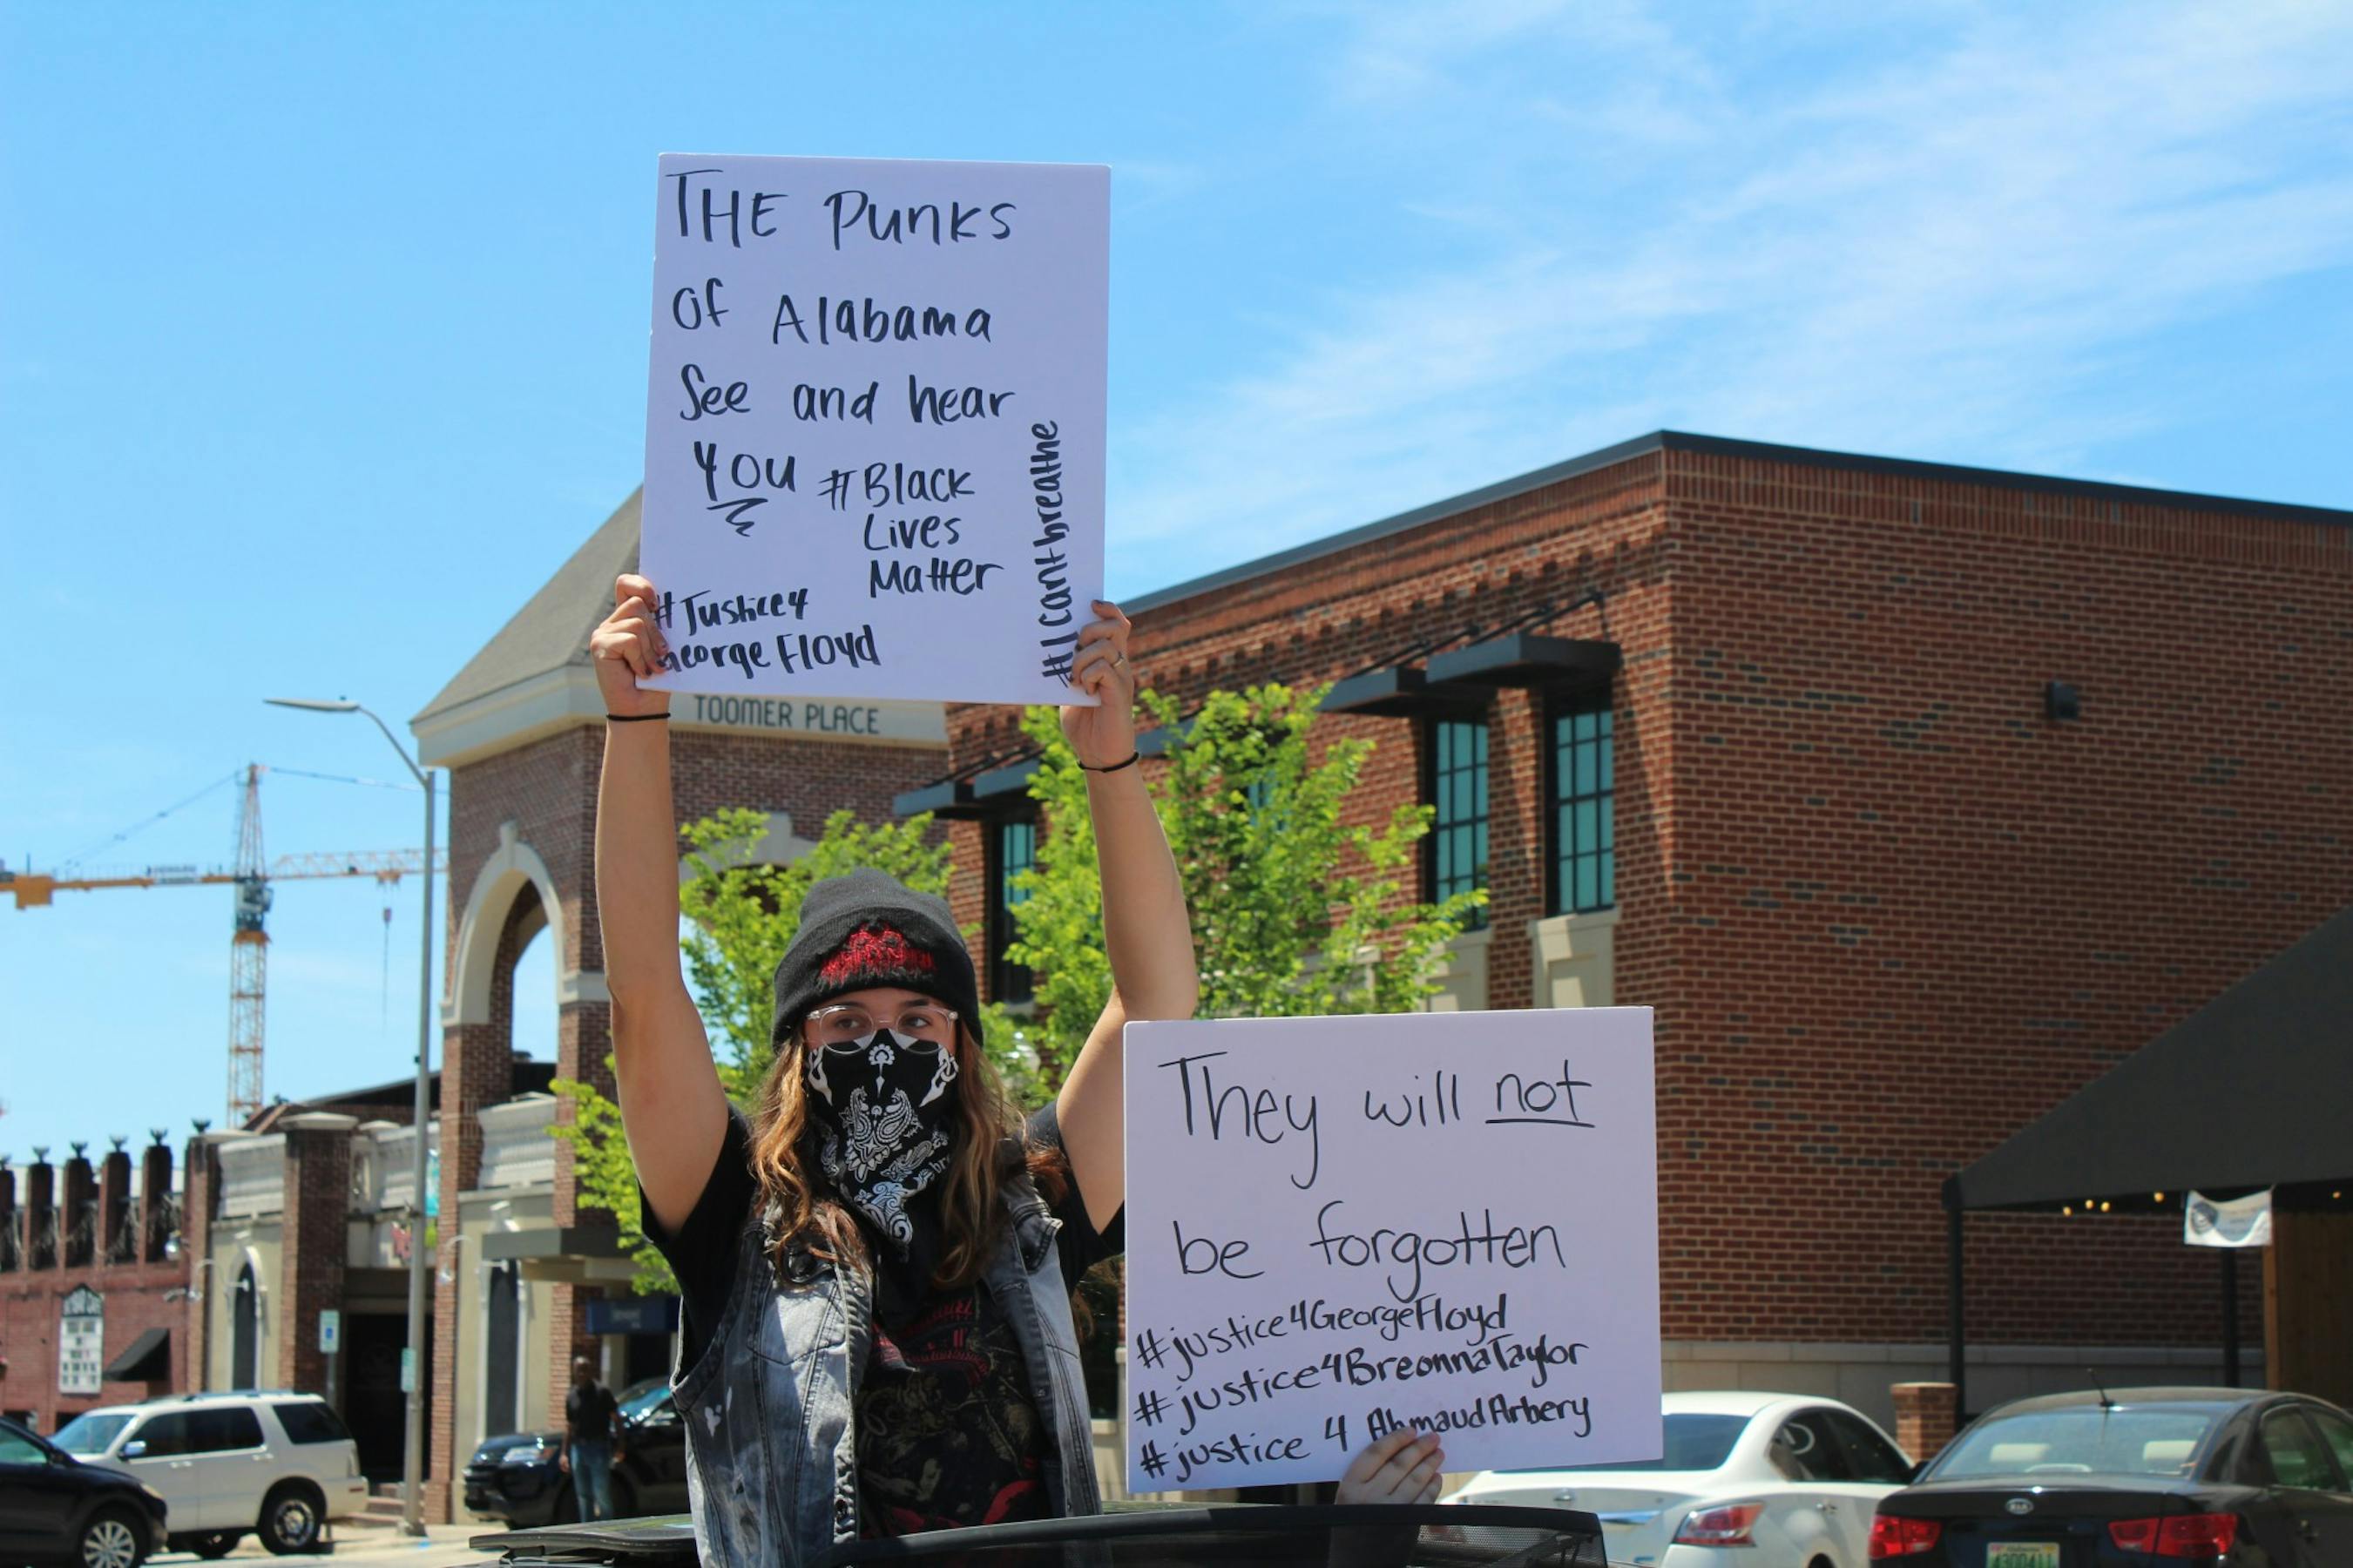 THE PUNKS
Of Alabama
See and hear
You
#Black
Lives
Matter
#Justice4
George Floyd
#Icantbreathe
TOOMER PLACE
They will not
be forgotten
#justice4GeorgeFloyd
#justice4BreonnaTaylor
#justice 4 AhmaudArbery
KIA